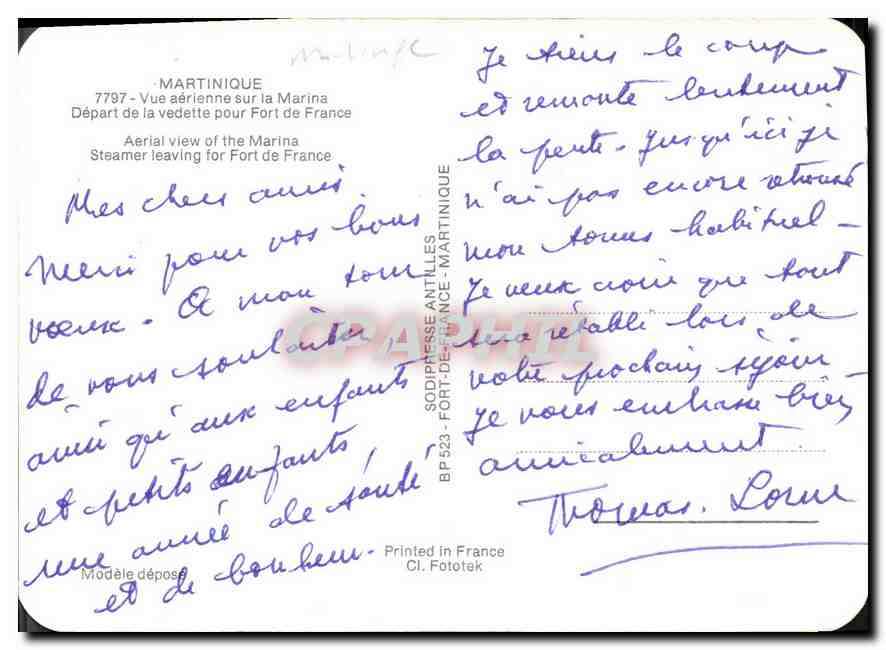 Martinique
MARTINIQUE
7797 - Vue aérienne sur la Marina
Départ de la vedette pour Fort de France
Aerial view of the Marina
Steamer leaving for Fort de France
Mes chers amis.
Merci pour vos bons
vœux. A mon tour
de vous souhaiter,
ainsi qu'aux enfants
et petits enfants,
une année de santé
et de bonheur.
Modèle déposé
Printed in France
Cl. Fototek
SODIPRESSE ANTILLES
BP 523 - FORT-DE-FRANCE - MARTINIQUE
CPAPHIL
Je tiens le coup
et remonte lentement
la pente. Jusqu'ici je
n'ai pas encore retrouvé
mon tonus habituel -
Je veux croire que tout
sera rétabli lors de
votre prochain séjour
Je vous embrasse bien
amicalement.
Thomas.